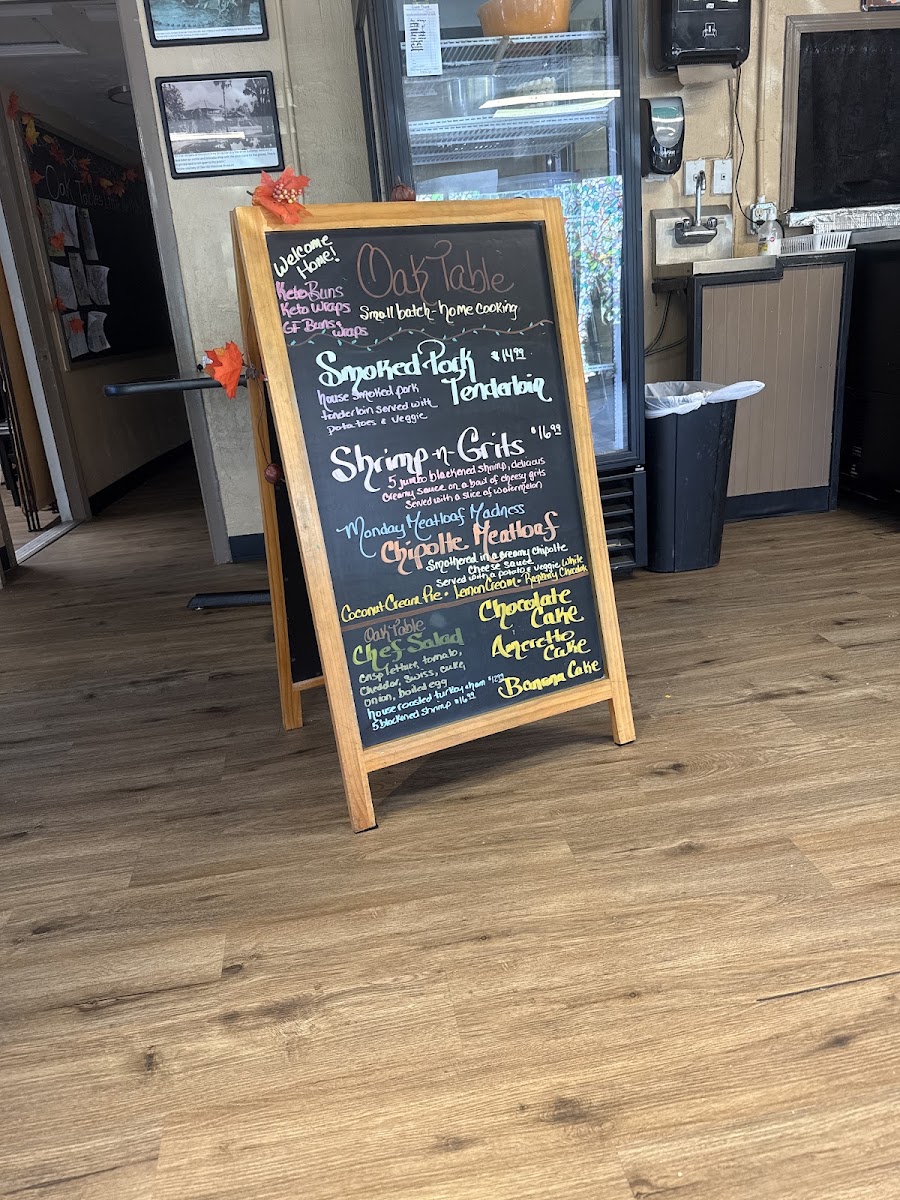 Welcome
Home!
Oak Table
Keto Buns
Keto Wraps
GF Buns & Wraps
Small batch - home cooking
Smoked Pork $14.99
Tenderloin
house smoked pork
tenderloin served with
potatoes & veggie
Shrimp-n-Grits $16.99
5 jumbo blackened shrimp, delicious
creamy sauce on a bowl of cheesy grits
served with a slice of watermelon
Monday Meatloaf Madness
Chipotle Meatloaf
Smothered in a creamy chipotle
cheese sauce
served with a potato & veggie
Coconut Cream Pie • Lemon Cream • White Raspberry Chocolate
Oak Table
Chef Salad
crisp lettuce, tomato,
cheddar, swiss, cuke,
onion, boiled egg
house roasted turkey & ham $12.99
5 blackened shrimp $16.99
Chocolate
Cake
Amaretto
Cake
Banana Cake